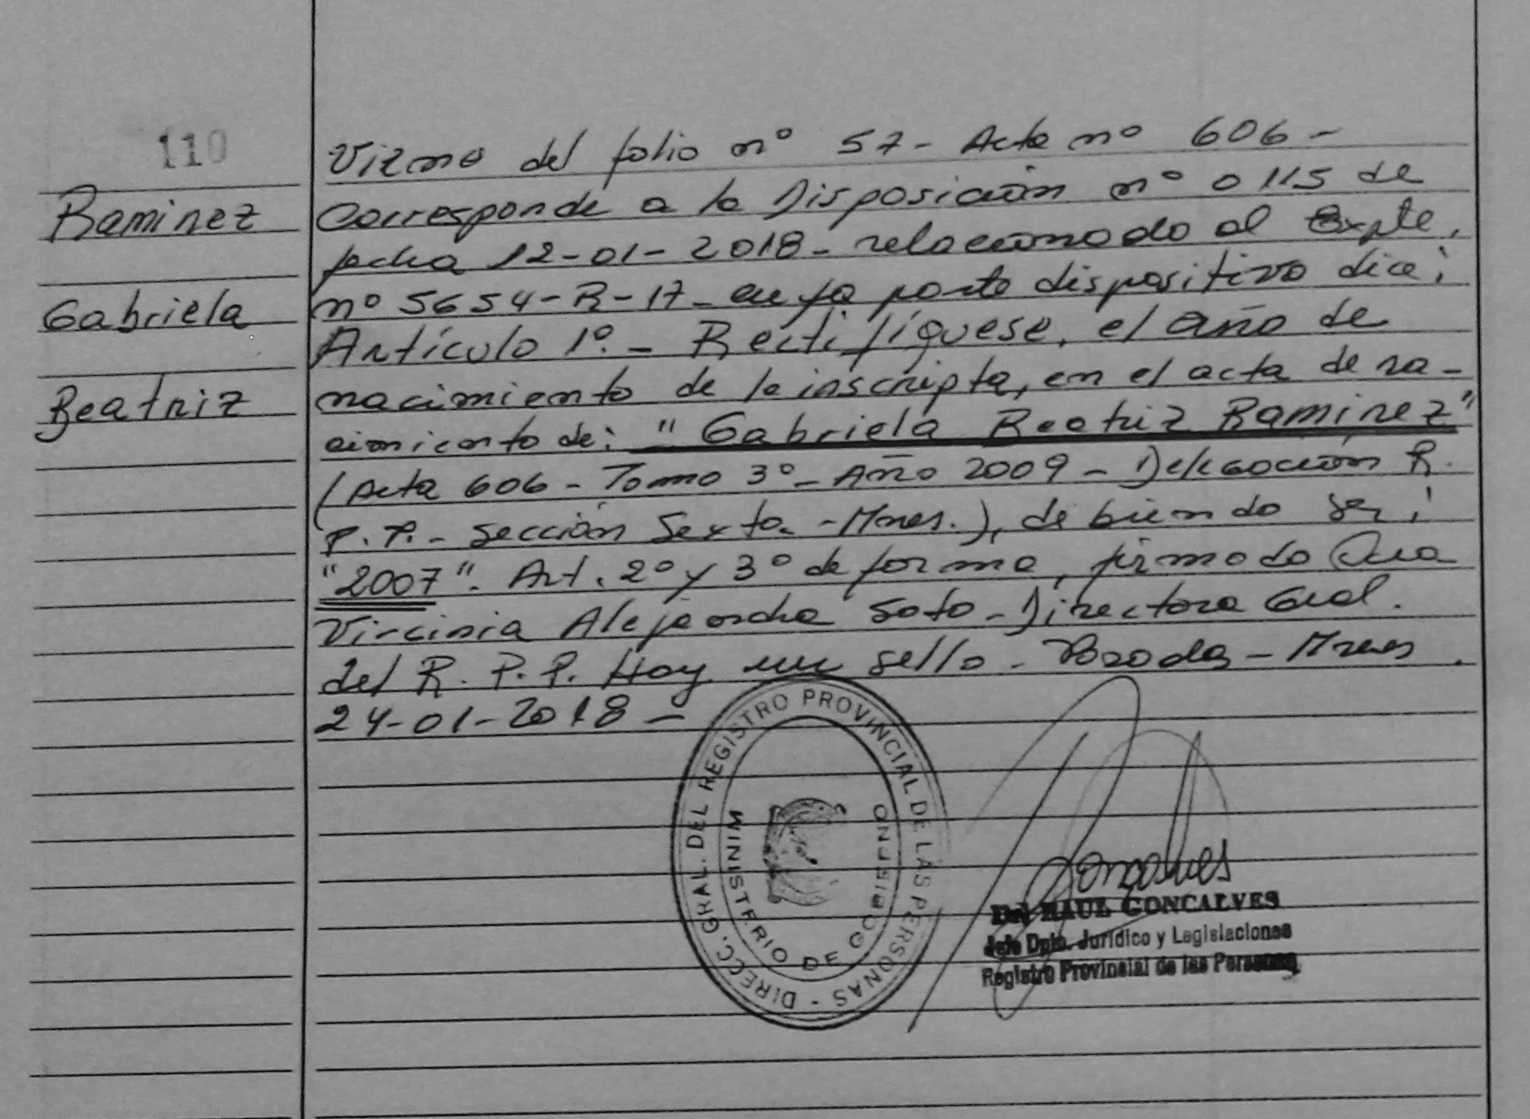 110
Ramirez
Gabriela
Beatriz
Viene del folio nº 57 - Acta nº 606 -
Corresponde a la Disposición nº 0115 de
fecha 12-01-2018 - relacionado al Expte.
nº 5654-R-17 - cuya parte dispositiva dice:
Artículo 1º. - Rectifíquese, el año de
nacimiento de la inscripta, en el acta de na-
cimiento de: "Gabriela Beatriz Ramirez"
(Acta 606 - Tomo 3º - Año 2009 - Delegación R.
P.P. - Sección Sexta. - Mnes.), debiendo ser:
"2007". Art. 2º y 3º de forma, firmado
Virginia Alejandra Soto - Directora Gral.
del R. P. P. Hay un sello - Posadas - Mnes.
24-01-2018 -
DIRECC. GRAL. DEL REGISTRO PROVINCIAL DE LAS PERSONAS -
MINISTERIO DE GOBIERNO
Goncalves
Dr. RAUL GONCALVES
Jefe Dpto. Jurídico y Legislaciones
Registro Provincial de las Personas